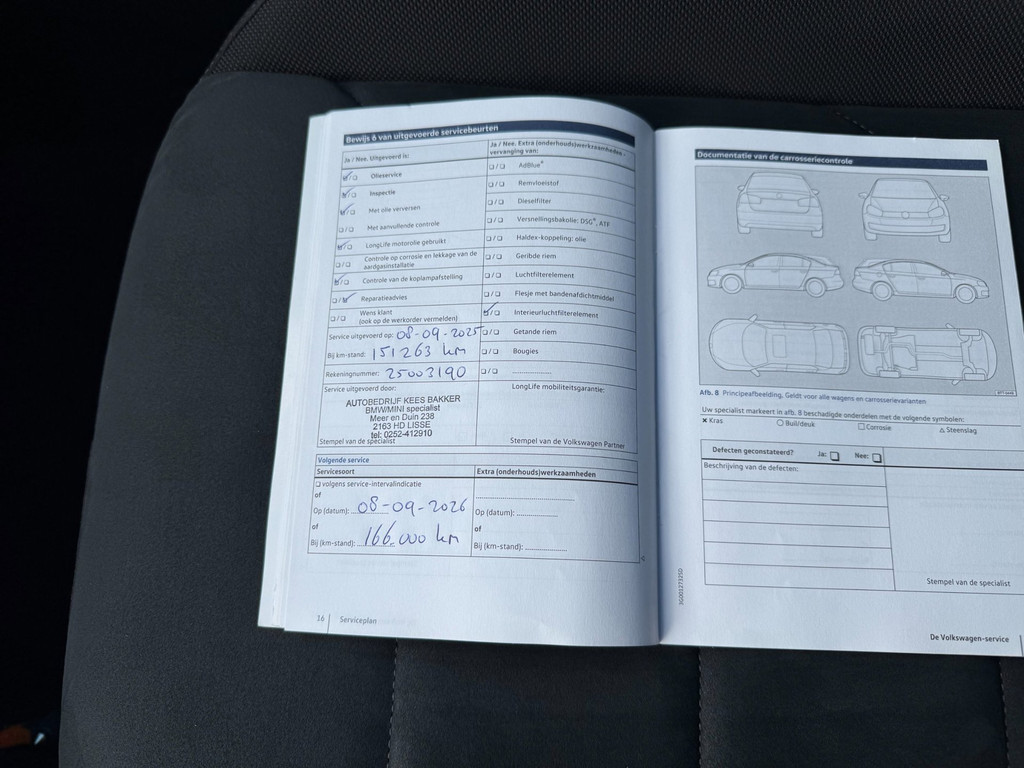 Bewijs 6 van uitgevoerde servicebeurten
Ja / Nee. Uitgevoerd is:
Olieservice
Inspectie
Met olie verversen
Met aanvullende controle
LongLife motorolie gebruikt
Controle op corrosie en lekkage van de
aardgasinstallatie
Controle van de koplampafstelling
Reparatieadvies
Wens klant
(ook op de werkorder vermelden)
Service uitgevoerd op: 08-09-2025
Bij km-stand: 151263 km
Rekeningnummer: 25003190
Service uitgevoerd door:
AUTOBEDRIJF KEES BAKKER
BMW/MINI specialist
Meer en Duin 238
2163 HD LISSE
tel: 0252-412910
Stempel van de specialist
Ja / Nee. Extra (onderhouds)werkzaamheden -
vervanging van:
AdBlue®
Remvloeistof
Dieselfilter
Versnellingsbakolie: DSG®, ATF
Haldex-koppeling: olie
Geribde riem
Luchtfilterelement
Flesje met bandenafdichtmiddel
Interieurluchtfilterelement
Getande riem
Bougies
LongLife mobiliteitsgarantie:
Stempel van de Volkswagen Partner
Volgende service
Servicesoort
volgens service-intervalindicatie
of
Op (datum): 08-09-2026
of
Bij (km-stand): 166.000 km
Extra (onderhouds)werkzaamheden
Op (datum):
of
Bij (km-stand):
36 Serviceplan
Documentatie van de carrosseriecontrole
Afb. 8 Principeafbeelding. Geldt voor alle wagens en carrosserievarianten
Uw specialist markeert in afb. 8 beschadigde onderdelen met de volgende symbolen:
× Kras ○ Buil/deuk □ Corrosie △ Steenslag
Defecten geconstateerd? Ja: Nee:
Beschrijving van de defecten:
Stempel van de specialist
De Volkswagen-service